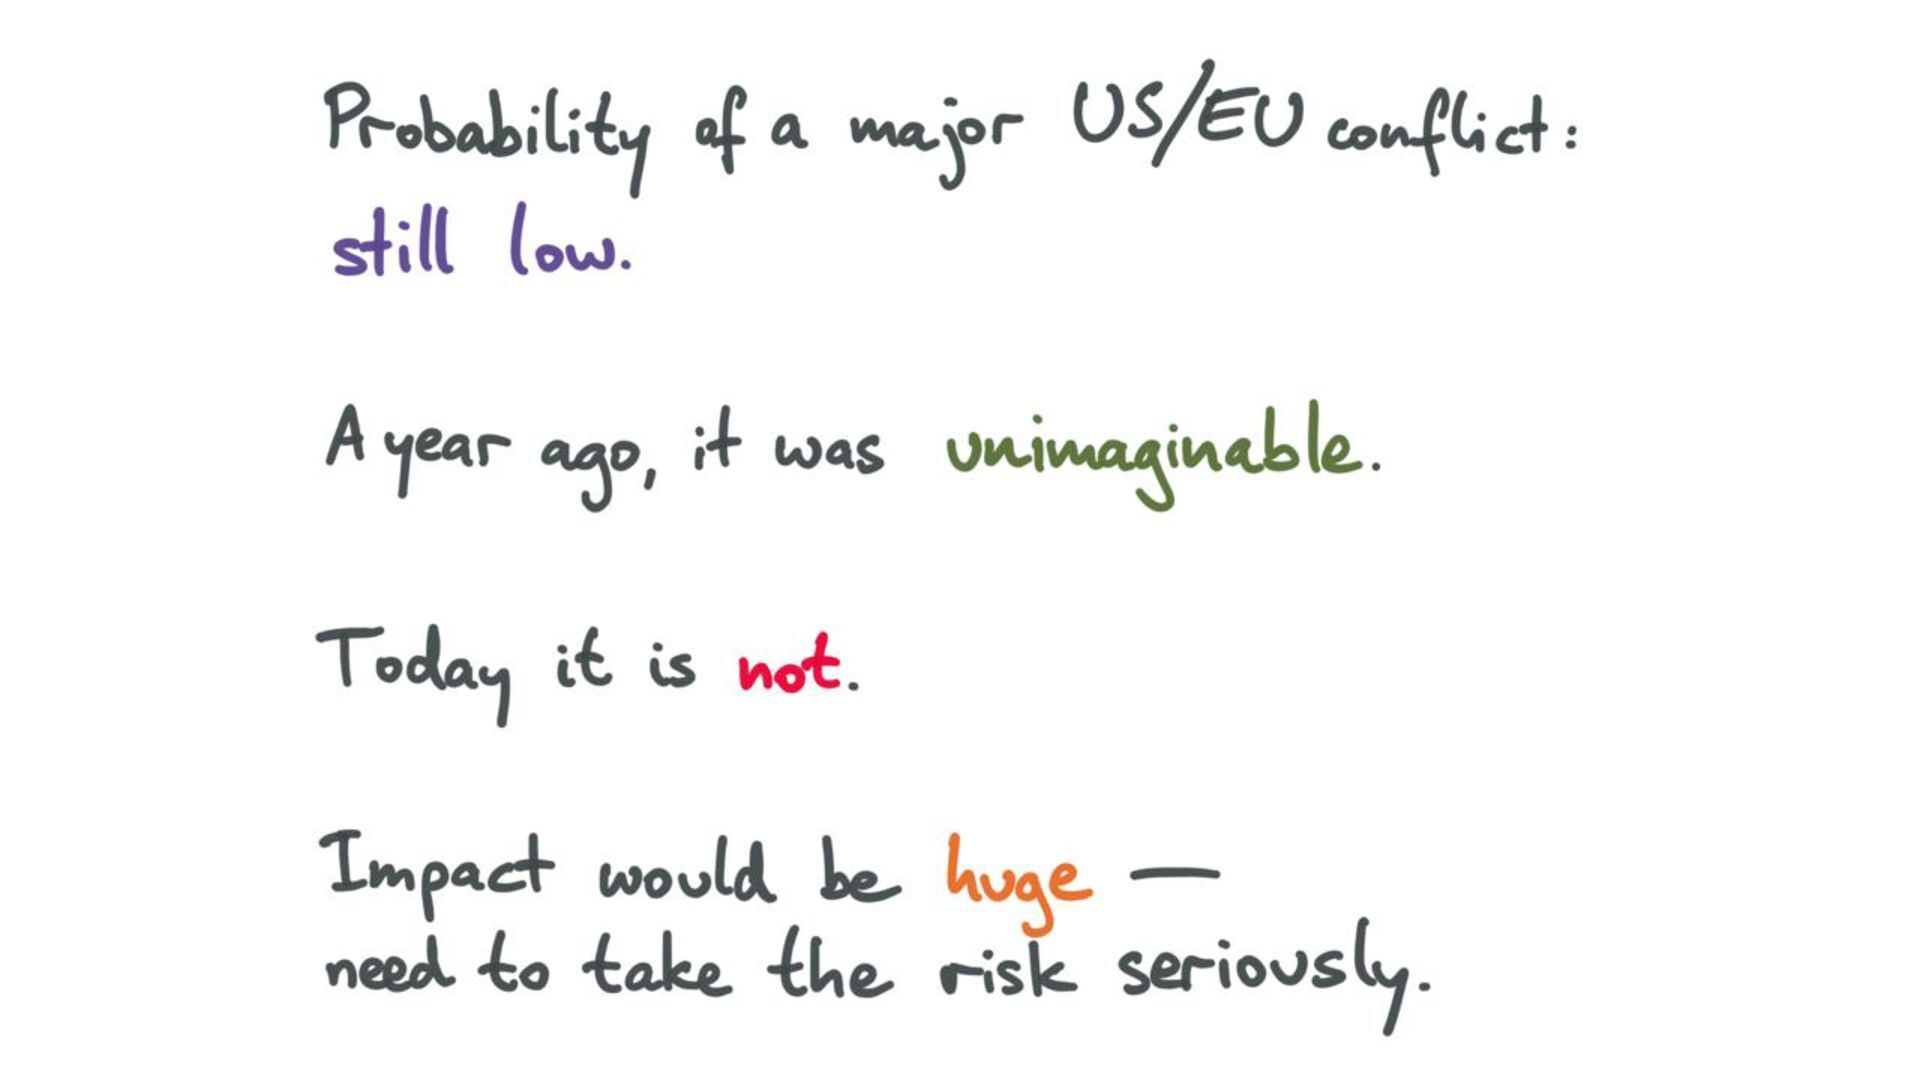 Probability of a major US/EU conflict:
still low.
A year ago, it was unimaginable.
Today it is not.
Impact would be huge —
need to take the risk seriously.